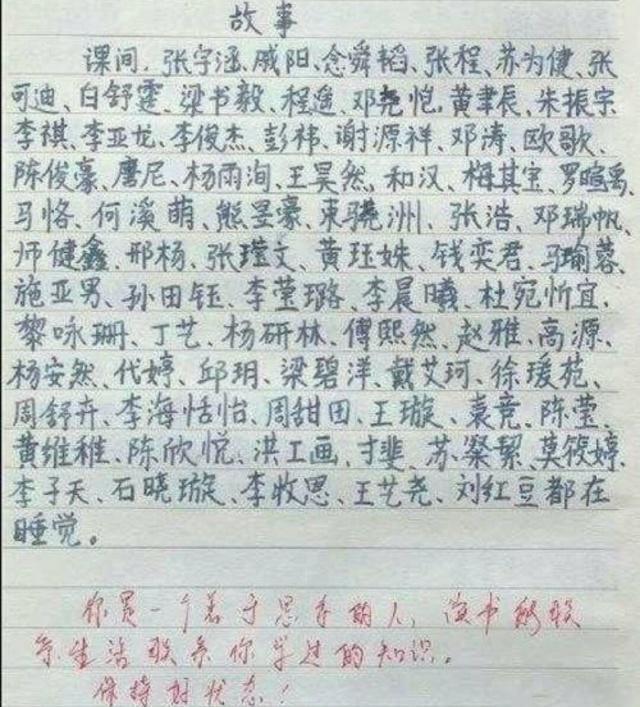 故事
课间，张宇涵、戚阳、念舜韬、张程、苏为健、张
可迪、白舒霆、梁书毅、程遥、邓尧恺、黄聿辰、朱振宗
李祺、李亚龙、李俊杰、彭祎、谢源祥、邓涛、欧歌、
陈俊豪、詹尼、杨雨洵、王昊然、和汉、梅其宝、罗暄禹、
马恪、何溪萌、熊昱豪、束骁洲、张浩、邓瑞帆、
师健鑫、邢杨、张瑾文、黄珏姝、钱奕君、马瑜蓉、
施亚男、孙田钰、李莹璐、李晨曦、杜宛忻宜、
黎咏珊、丁艺、杨研林、傅熙然、赵雅、高源、
杨安然、代婷、邱玥、梁碧洋、戴艾珂、徐瑗苑、
周舒卉、李海恬怡、周甜田、王璇、袁竞、陈莹、
黄维稚、陈欣悦、洪工画、才斐、苏粲絜、莫筱婷、
李子天、石晓璇、李牧思、王艺尧、刘红豆都在
睡觉。
你是一个善于思考的人，读书能联
系生活联系你学过的知识。
保持好状态！